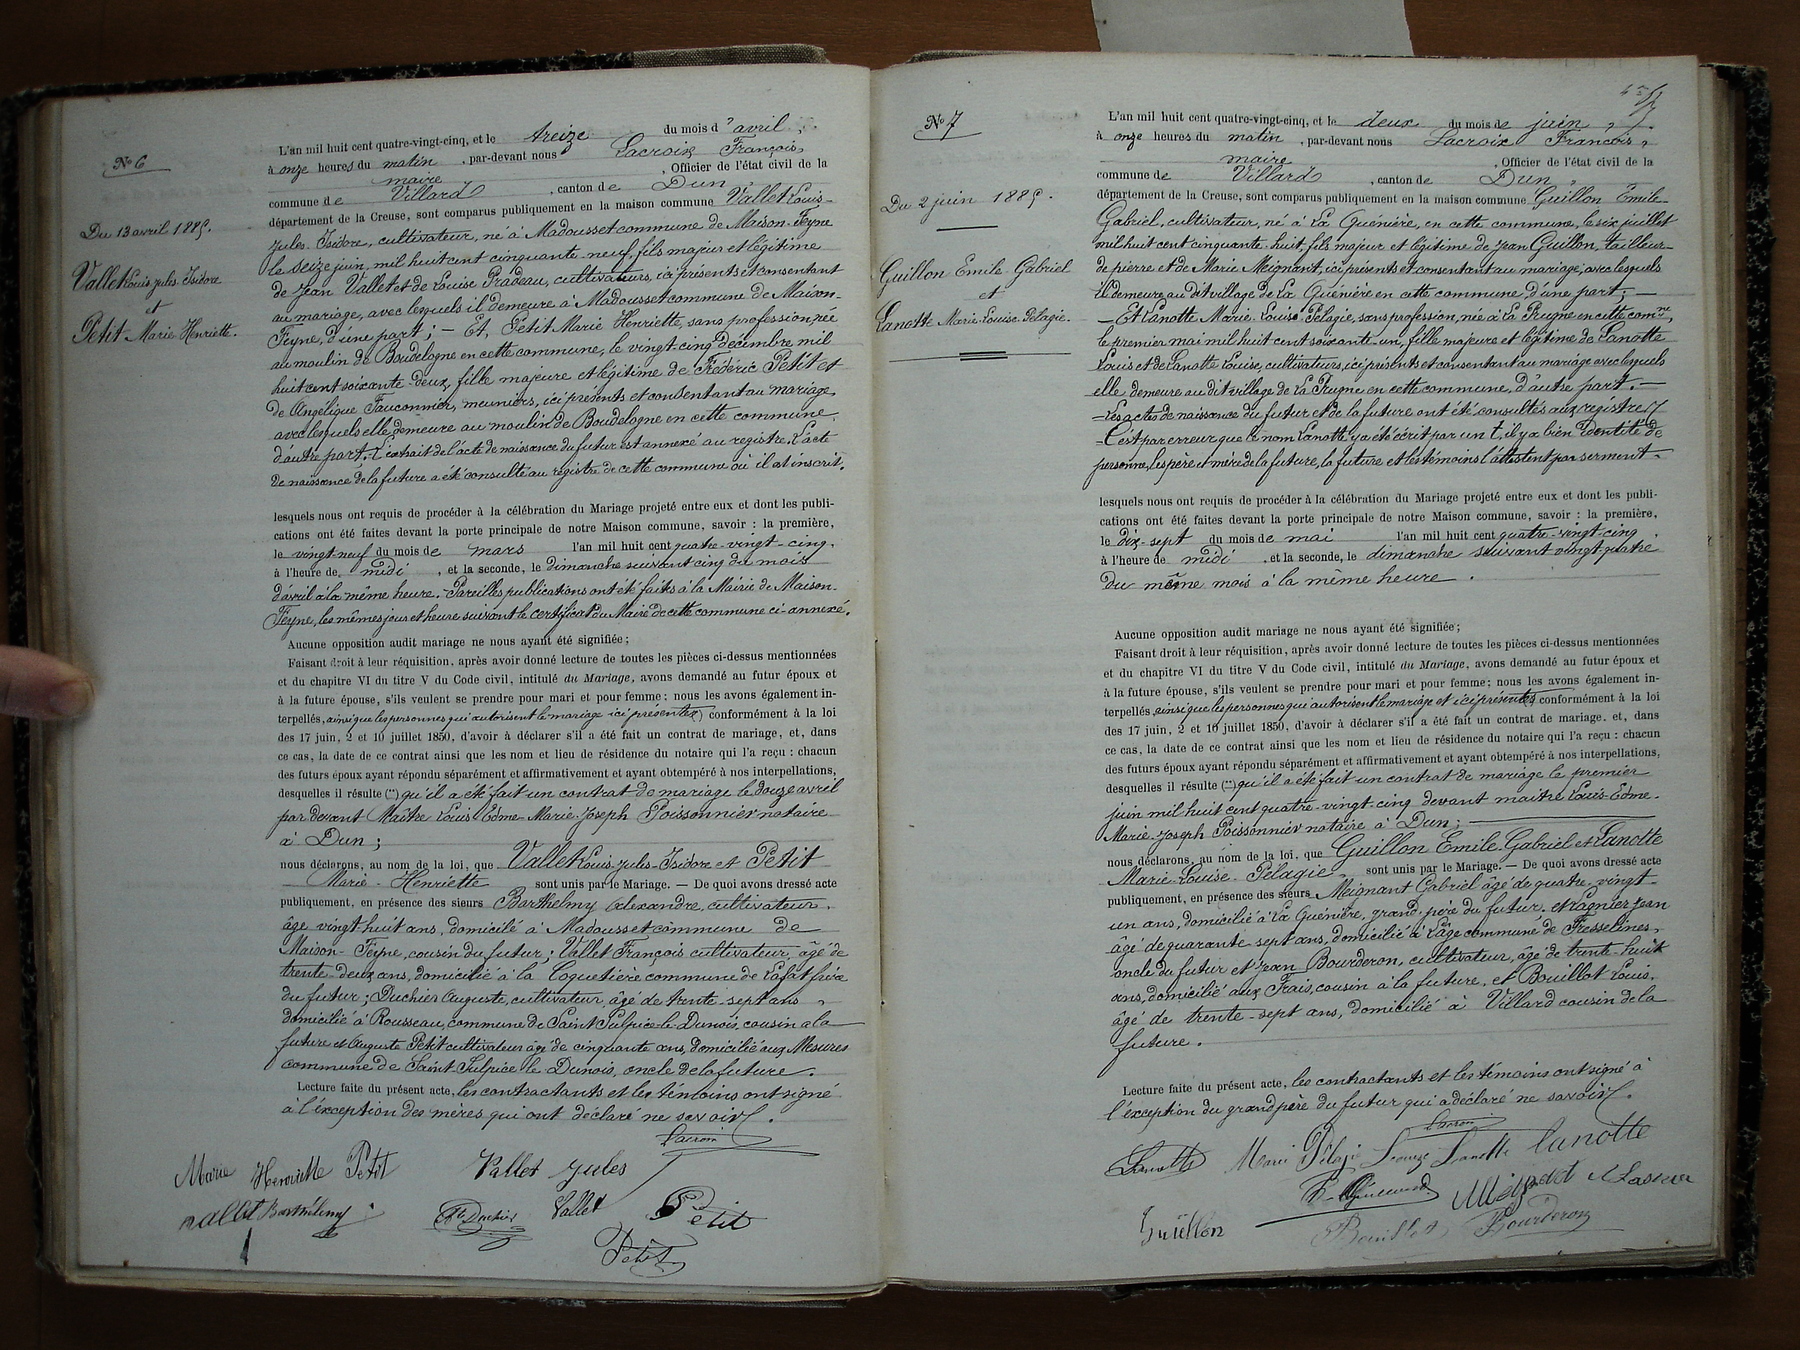 N° 6
Du 13 avril 1885.
Vallet Louis Jules Isidore
et
Petit Marie Henriette.
L'an mil huit cent quatre-vingt-cinq, et le treize du mois d'avril,
à onze heures du matin, par-devant nous Lacroix François,
maire, Officier de l'état civil de la
commune de Villard, canton de Dun,
département de la Creuse, sont comparus publiquement en la maison commune Vallet Louis-
Jules-Isidore, cultivateur, né à Madousset commune de Maison-Feyne
le seize juin, mil huit cent cinquante-neuf, fils majeur et légitime
de Jean Vallet et de Louise Pradeau, cultivateurs, ici présents et consentant
au mariage, avec lesquels il demeure à Madousset commune de Maison-
Feyne, d'une part; — Et, Petit Marie Henriette, sans profession, née
au moulin de Boudelogne en cette commune, le vingt-cinq décembre mil
huit cent soixante-deux, fille majeure et légitime de Frédéric Petit et
de Angélique Fauconnier, meuniers, ici présents et consentant au mariage
avec lesquels elle demeure au moulin de Boudelogne en cette commune,
d'autre part. L'extrait de l'acte de naissance du futur est annexé au registre. L'acte
de naissance de la future a été consulté au registre de cette commune où il est inscrit.
lesquels nous ont requis de procéder à la célébration du Mariage projeté entre eux et dont les publi-
cations ont été faites devant la porte principale de notre Maison commune, savoir : la première,
le vingt-neuf du mois de mars l'an mil huit cent quatre-vingt-cinq,
à l'heure de midi, et la seconde, le dimanche suivant cinq du mois
d'avril à la même heure. Pareilles publications ont été faites à la Mairie de Maison-
Feyne, les mêmes jours et heure suivant le certificat du Maire de cette commune ci-annexé.
Aucune opposition audit mariage ne nous ayant été signifiée;
Faisant droit à leur réquisition, après avoir donné lecture de toutes les pièces ci-dessus mentionnées
et du chapitre VI du titre V du Code civil, intitulé du Mariage, avons demandé au futur époux et
à la future épouse, s'ils veulent se prendre pour mari et pour femme; nous les avons également in-
terpellés, ainsi que les personnes qui autorisent le mariage ici présentes) conformément à la loi
des 17 juin, 2 et 10 juillet 1850, d'avoir à déclarer s'il a été fait un contrat de mariage, et, dans
ce cas, la date de ce contrat ainsi que les nom et lieu de résidence du notaire qui l'a reçu : chacun
des futurs époux ayant répondu séparément et affirmativement et ayant obtempéré à nos interpellations,
desquelles il résulte (**) qu'il a été fait un contrat de mariage le douze avril
par devant Maître Louis-Edme-Marie-Joseph Poissonnier notaire
à Dun;
nous déclarons, au nom de la loi, que Vallet Louis-Jules-Isidore et Petit
Marie-Henriette sont unis par le Mariage. — De quoi avons dressé acte
publiquement, en présence des sieurs Barthelmy Alexandre, cultivateur,
âge vingt huit ans, domicilé à Madousset commune de
Maison-Feyne, cousin du futur; Vallet François cultivateur, âgé de
trente-deux ans, domicilié à la Coquetière commune de Lafat frère
du futur; Duchier Auguste, cultivateur, âgé de trente-sept ans,
domicilié à Rousseau, commune de Saint Sulpice le Dunois, cousin à la
future et Auguste Petit cultivateur âgé de cinquante ans, domicilié aux Mesures
commune de Saint-Sulpice le Dunois, oncle de la future.
Lecture faite du présent acte, les contractants et les témoins ont signé
à l'exception des mères qui ont déclaré ne savoir.
Lacroix
Marie Henriette Petit Vallet Jules
Vallet Barthélemy Duchier Vallet Petit
Petit
N° 7
Du 2 juin 1885.
Guillon Emile-Gabriel
et
Lanotte Marie-Louise-Pélagie.
L'an mil huit cent quatre-vingt-cinq, et le deux du mois de juin,
à onze heures du matin, par-devant nous Lacroix François,
maire, Officier de l'état civil de la
commune de Villard, canton de Dun,
département de la Creuse, sont comparus publiquement en la maison commune Guillon Emile-
Gabriel, cultivateur, né à La Guénière, en cette commune, le six juillet
mil huit cent cinquante-huit, fils majeur et légitime de Jean Guillon, tailleur
de pierre et de Marie Meignant, ici présents et consentant au mariage, avec lesquels
il demeure au dit village de La Guénière en cette commune, d'une part; —
— Et Lanotte Marie-Louise-Pélagie, sans profession, née à La Prugne en cette comne,
le premier mai mil huit cent soixante-un, fille majeure et légitime de Lanotte
Louis et de Lanotte Louise, cultivateurs, ici présents et consentant au mariage avec lesquels
elle demeure au dit village de La Prugne en cette commune, d'autre part. —
— Les actes de naissance du futur et de la future ont été consultés aux registres
— C'est par erreur que le nom Lanotte y a été écrit par un t, il y a bien identité de
personne, les père et mère de la future, la future et les témoins l'attestent par serment.
lesquels nous ont requis de procéder à la célébration du Mariage projeté entre eux et dont les publi-
cations ont été faites devant la porte principale de notre Maison commune, savoir : la première,
le dix-sept du mois de mai l'an mil huit cent quatre-vingt-cinq,
à l'heure de midi, et la seconde, le dimanche suivant vingt-quatre
du même mois à la même heure.
Aucune opposition audit mariage ne nous ayant été signifiée;
Faisant droit à leur réquisition, après avoir donné lecture de toutes les pièces ci-dessus mentionnées
et du chapitre VI du titre V du Code civil, intitulé du Mariage, avons demandé au futur époux et
à la future épouse, s'ils veulent se prendre pour mari et pour femme; nous les avons également in-
terpellés, ainsi que les personnes qui autorisent le mariage et ici présentes, conformément à la loi
des 17 juin, 2 et 10 juillet 1850, d'avoir à déclarer s'il a été fait un contrat de mariage. et, dans
ce cas, la date de ce contrat ainsi que les nom et lieu de résidence du notaire qui l'a reçu : chacun
des futurs époux ayant répondu séparément et affirmativement et ayant obtempéré à nos interpellations,
desquelles il résulte (**) qu'il a été fait un contrat de mariage le premier
juin mil huit cent quatre-vingt-cinq devant maître Louis-Edme-
Marie-Joseph Poissonnier notaire à Dun;
nous déclarons, au nom de la loi, que Guillon Emile Gabriel et Lanotte
Marie-Louise-Pélagie, sont unis par le Mariage. — De quoi avons dressé acte
publiquement, en présence des sieurs Meignant Gabriel âgé de quatre-vingt-
un ans, domicilié à La Guénière, grand-père du futur, et Lagnier Jean
âgé de quarante-sept ans, domicilié à L'âge commune de Fresselines,
oncle du futur et Jean Bourderon, cultivateur, âgé de trente-huit
ans, domicilié aux Frais, cousin à la future, et Bouillot Louis,
âgé de trente-sept ans, domicilié à Villard cousin de la
future.
Lecture faite du présent acte, les contractants et les témoins ont signé à
l'exception du grand père du futur qui a déclaré ne savoir.
Lacroix
Lanotte Marie Pélagie Louise Lanotte Lanotte
Guillon Bouillot Bourderon